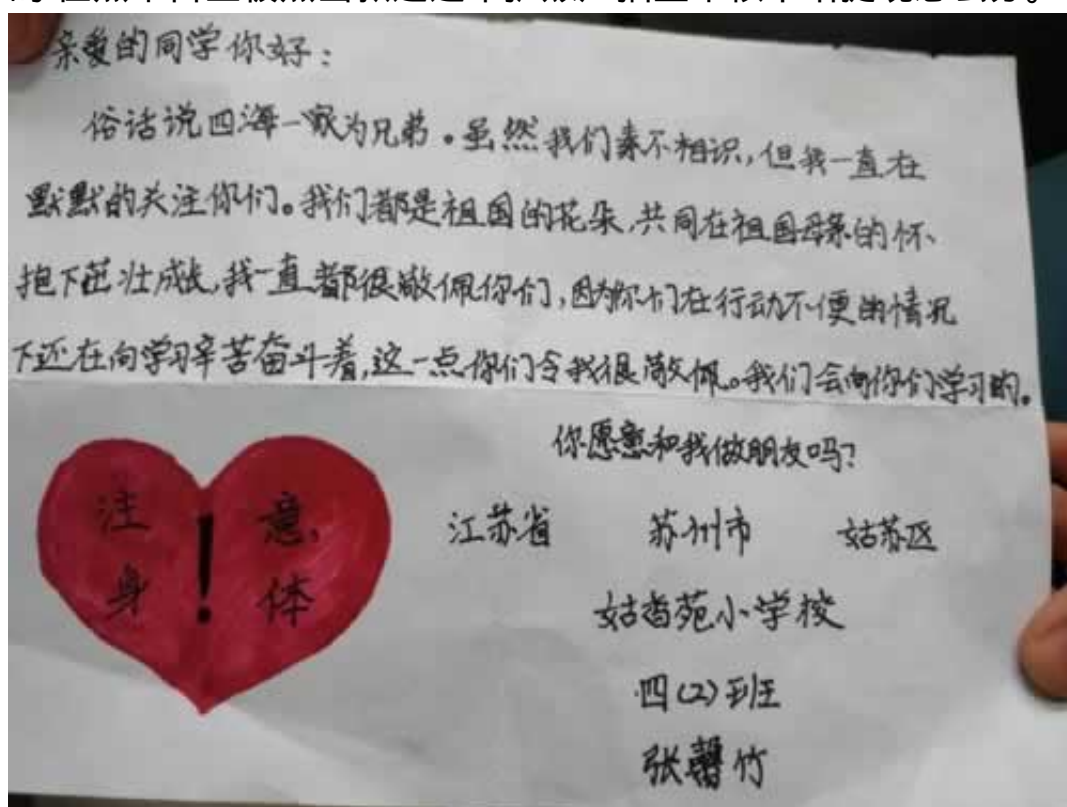 亲爱的同学你好：
俗话说四海一家为兄弟。虽然我们素不相识，但我一直在
默默的关注你们。我们都是祖国的花朵，共同在祖国母亲的怀
抱下茁壮成长，我一直都很敬佩你们，因为你们在行动不便的情况
下还在向学习辛苦奋斗着，这一点你们令我很敬佩。我们会向你们学习的。
你愿意和我做朋友吗？
江苏省 苏州市 姑苏区
姑香苑小学校
四(2)班
张馨竹
注意
身！体